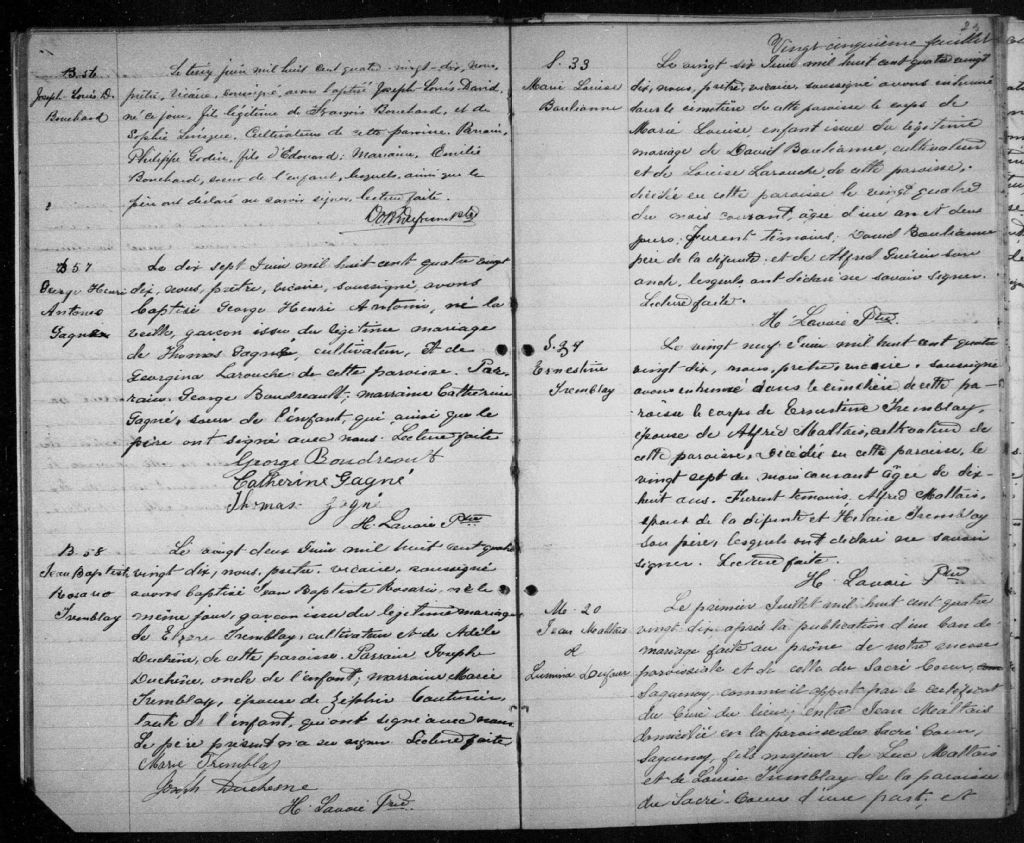 B. 56
Joseph-Louis-D.
Bouchard
Le treize juin mil huit cent quatre-vingt-dix, nous,
prêtre, vicaire, soussigné, avons baptisé Joseph-Louis-David,
né ce jour, fils légitime de François Bouchard, et de
Sophie Cultivateur de cette paroisse, Parrain,
Philippe Godin, fils d'Edouard; Marraine, Emilie
Bouchard, sœur de l'enfant, lesquels, ainsi que le
père ont déclaré ne savoir signer, lecture faite.
B 57
George Henri
Antonio
Gagné
Le dix sept Juin mil huit cent quatre vingt
dix, nous, prêtre, vicaire, soussigné, avons
baptisé George Henri Antonio, né la
veille, garçon issu du légitime mariage
de Thomas Gagné, cultivateur, et de
Georgina Larouche de cette paroisse. Par-
rain, George Boudreault; marraine Catherine
Gagné, sœur de l'enfant, qui, ainsi que le
père ont signé avec nous. Lecture faite
George Boudreault
Catherine Gagné
Thomas Gagné
H. Lavoie Ptre
B. 58
Jean Baptiste
Rosario
Tremblay
Le vingt deux Juin mil huit cent quatre
vingt dix, nous, prêtre, vicaire, soussigné
avons baptisé Jean Baptiste Rosario, né le
même jour, garçon issu du légitime mariage
de Elzéar Tremblay, cultivateur et de Adèle
Duchêne, de cette paroisse. Parrain Joseph
Duchêne, oncle de l'enfant; marraine Marie
Tremblay, épouse de Zéphir Couturier,
tante de l'enfant, qui ont signé avec nous
Le père présent n'a su signer Lecture faite
Marie Tremblay
Joseph Duchesne
H. Lavoie Ptre
Vingt cinquième feuillet
S. 33
Marie Louise
Boulianne
Le vingt six Juin mil huit cent quatre vingt
dix, nous, prêtre, vicaire, soussigné avons inhumé
dans le cimetière de cette paroisse le corps de
Marie Louise, enfant issue du légitime
mariage de David Boulianne, cultivateur
et de Louise Larouche de cette paroisse,
décédée en cette paroisse le vingt quatre
du mois courant, âgée d'un an et deux
jours. Furent témoins; David Boulianne
père de la défunte et de Alfred Guérin son
oncle, lesquels ont déclaré ne savoir signer.
Lecture faite.
H. Lavoie Ptre.
S. 34
Ernestine
Tremblay
Le vingt neuf Juin mil huit cent quatre
vingt dix, nous, prêtre, vicaire, soussigné
avons inhumé dans le cimetière de cette pa-
roisse le corps de Ernestine Tremblay,
épouse de Alfred Maltais, cultivateur de
cette paroisse, décédée en cette paroisse, le
vingt sept du mois courant âgée de dix
huit ans. Furent témoins Alfred Maltais,
époux de la défunte et Hilaire Tremblay
son père, lesquels ont déclaré ne savoir
signer. Lecture faite
H. Lavoie Ptre
M. 20
Jean Maltais
&
Lumina Dufour
Le premier Juillet mil huit cent quatre
vingt dix après la publication d'un ban de
mariage faite au prône de notre messe
paroissiale et de celle du Sacré Cœur,
Saguenay, comme il appert par le certificat
du Curé du lieu, entre Jean Maltais
domicilié en la paroisse du Sacré Cœur,
Saguenay, fils majeur de Luc Maltais
et de Louise Tremblay de la paroisse
du Sacré-Cœur d'une part, et